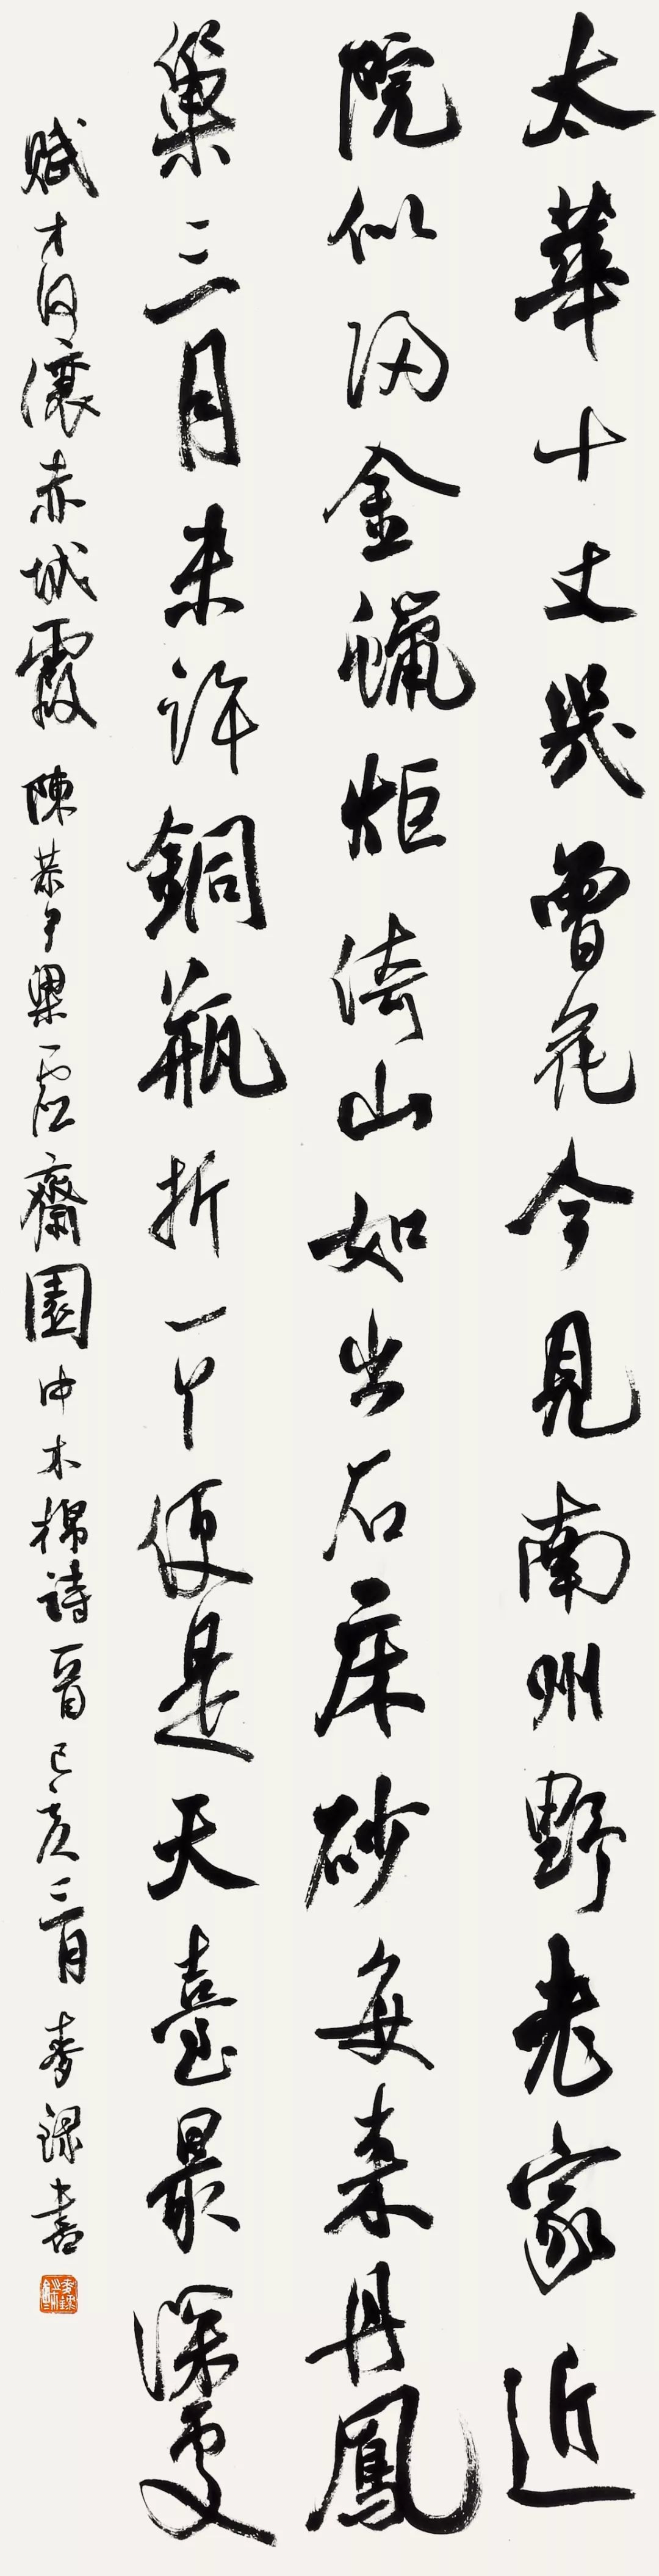 太華十丈幾曾花今見南州野老家近
院似歸金蠟炬倚山如出石床砂每來丹鳳
巢三月未許銅瓶折一丫便是天臺最深處
賦才何讓赤城霞 陳恭尹梁虛齋園中木棉詩一首己亥三月麥錄書